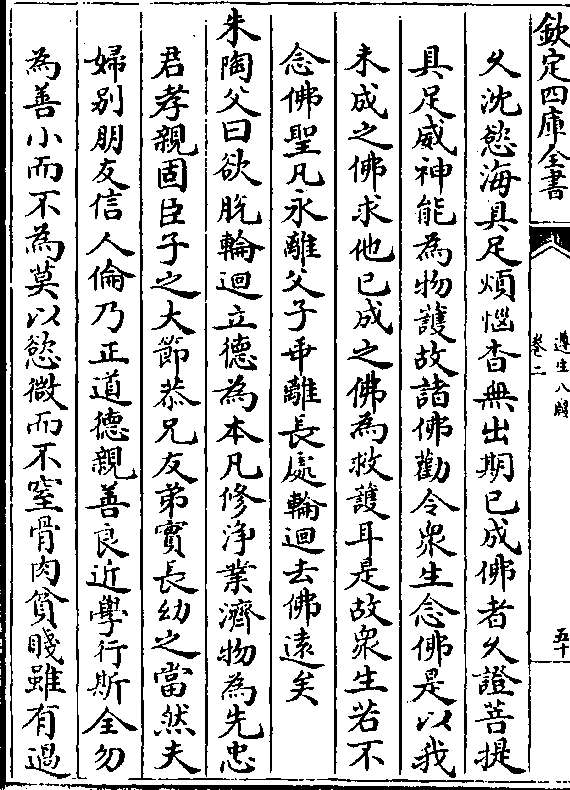 欽定四庫全書
遵生八牋
卷二
五十
久沈慾海具足煩惱杳無出期已成佛者久證菩提
具足威神能為物護故諸佛勸令衆生念佛是以我
未成之佛求他已成之佛為救護耳是故衆生若不
念佛聖凡永離父子乖離長處輪迴去佛遠矣
朱陶父曰欲脫輪迴立德為本凡修淨業濟物為先忠
君孝親固臣子之大節恭兄友弟實長幼之當然夫
婦别朋友信人倫乃正道德親善良近學行斯全勿
為善小而不為莫以慾微而不窒骨肉貧賤雖有過